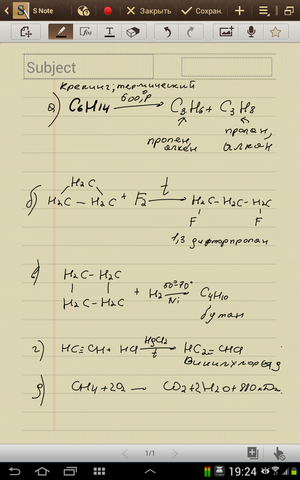 S Note
Закрыть
Сохран.
Subject
Крекинг; термический
а) C6H14 600°,P C3H6 + C3H8
пропен, алкен
пропан, алкан
б) H2C
H2C — H2C + F2 t H2C - H2C - H2C
F F
1,3 дифторпропан
в) H2C - H2C
H2C - H2C + H2 Ni C4H10
бутан
г) HC≡CH + HCl HgCl2 t HC2=CHCl
винилхлорид
д) CH4 + 2O2 — CO2 + 2H2O +
1/1
19:24